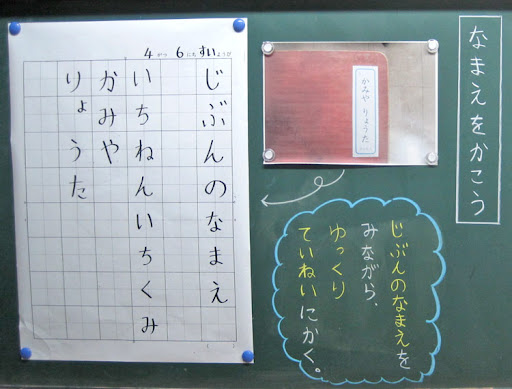 なまえをかこう
かみや りょうた
じぶんのなまえを
みながら、
ゆっくり
ていねいにかく。
4がつ6にちすいようび
じぶんのなまえ
いちねんいちくみ
かみや
りょうた